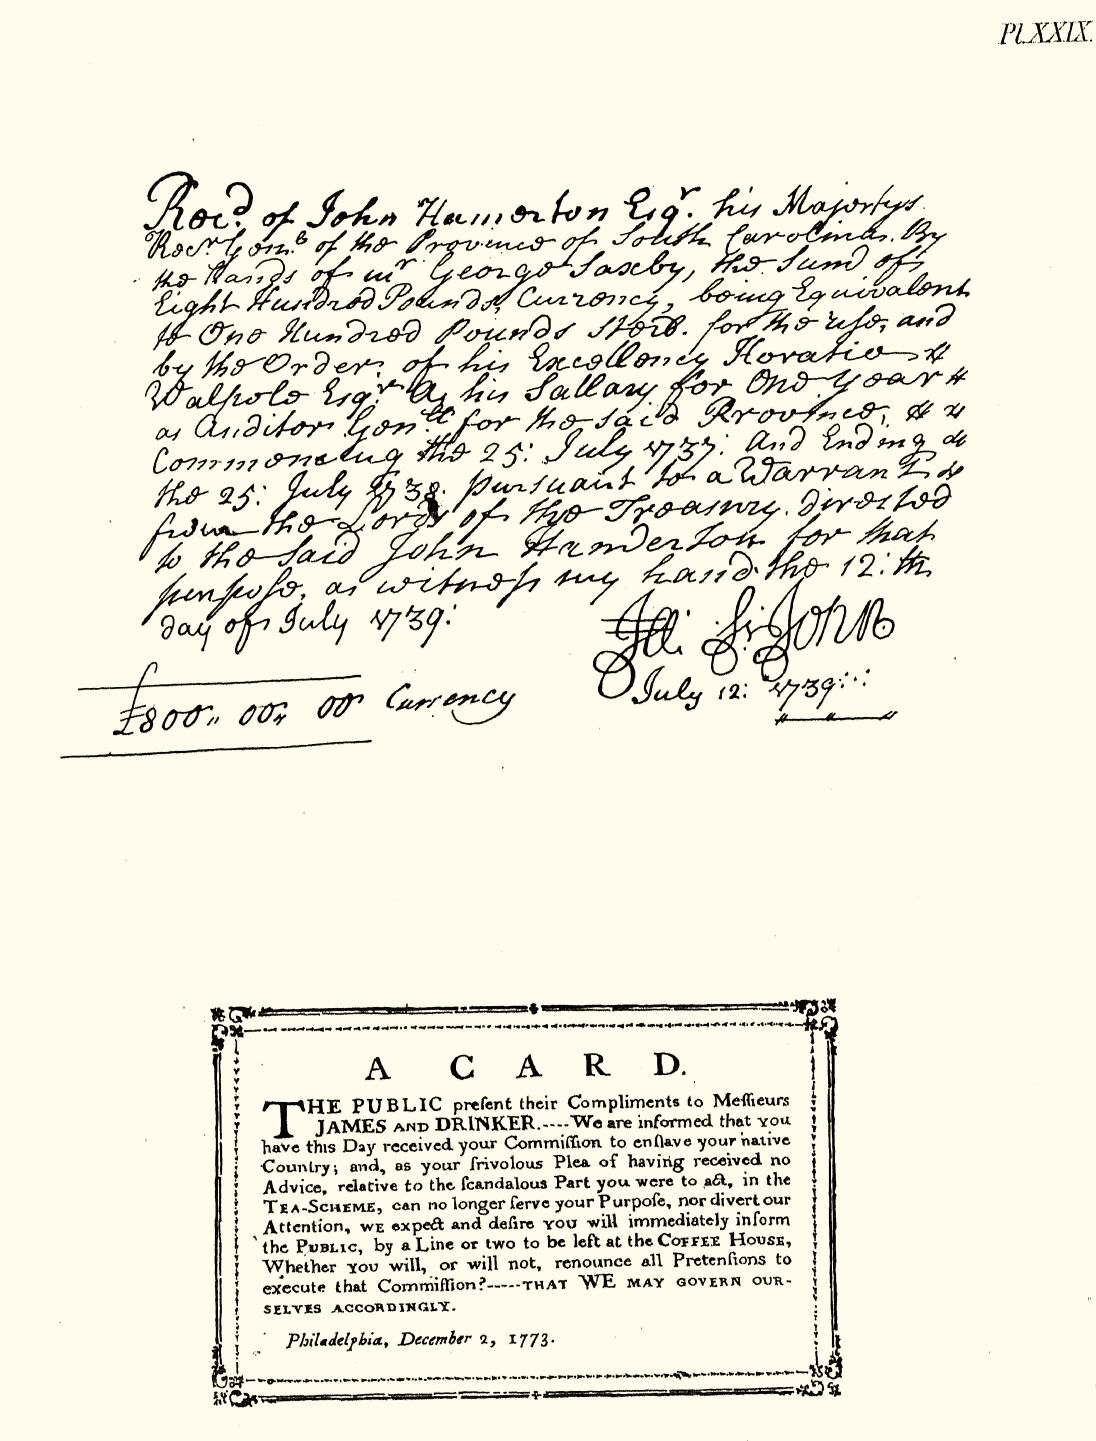 Pl.XXIX.
Rec.d of John Hamerton Esq.r his Majestys
Rec.r Gen.l of the Province of South Carolina. By
the Hands of mr George Saxby, the Sum of
Eight Hundred Pounds, Currency, being Equivalent
to One Hundred Pounds Sterl. for the use, and
by the Order, of his Excellency Horatio
Walpole Esq.r As his Sallary for One year
as Auditor Gen.ll for the said Province,
Commencing the 25: July 1737: And Ending
the 25: July 1738. pursuant to a Warrant
from the Lords of the Treasury. directed
to the said John Hamerton for that
purpose, as witness my hand the 12:th
day of July 1739:
St John
July 12: 1739
£800,, 00,, 00 Currency
A CARD.
THE PUBLIC preſent their Compliments to Meſſieurs
JAMES AND DRINKER.----We are informed that you
have this Day received your Commiſſion to enſlave your native
Country; and, as your frivolous Plea of having received no
Advice, relative to the ſcandalous Part you were to act, in the
TEA-SCHEME, can no longer ſerve your Purpoſe, nor divert our
Attention, WE expect and deſire YOU will immediately inform
the PUBLIC, by a Line or two to be left at the COFFEE HOUSE,
Whether YOU will, or will not, renounce all Pretenſions to
execute that Commiſſion?-----THAT WE MAY GOVERN OUR-
SELVES ACCORDINGLY.
Philadelphia, December 2, 1773.